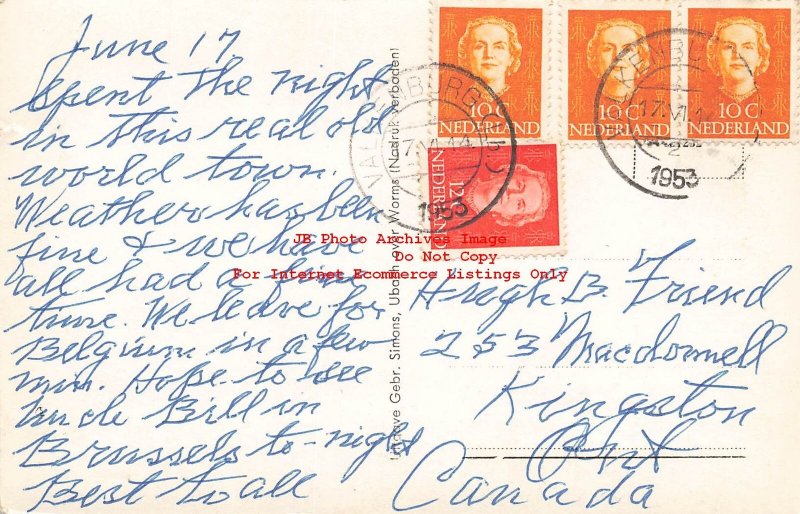 June 17
Spent the night
in this real old
world town.
Weather has been
fine & we have
all had a fine
time. We leave for
Belgium in a few
min. Hope to see
Uncle Bill in
Brussels to-night
Best to all
10 C
NEDERLAND
10 C
NEDERLAND
10 C
NEDERLAND
12
NEDERLAND
VALKENBURG
17.VI.14
1953
17.VI.
2
1953
Uitgave Gebr. Simons, Ubach over Worms (Nadruk verboden)
JB Photo Archives Image
Do Not Copy
For Internet Ecommerce Listings Only
Hugh B. Friend
253 Macdonnell
Kingston
Ont
Canada